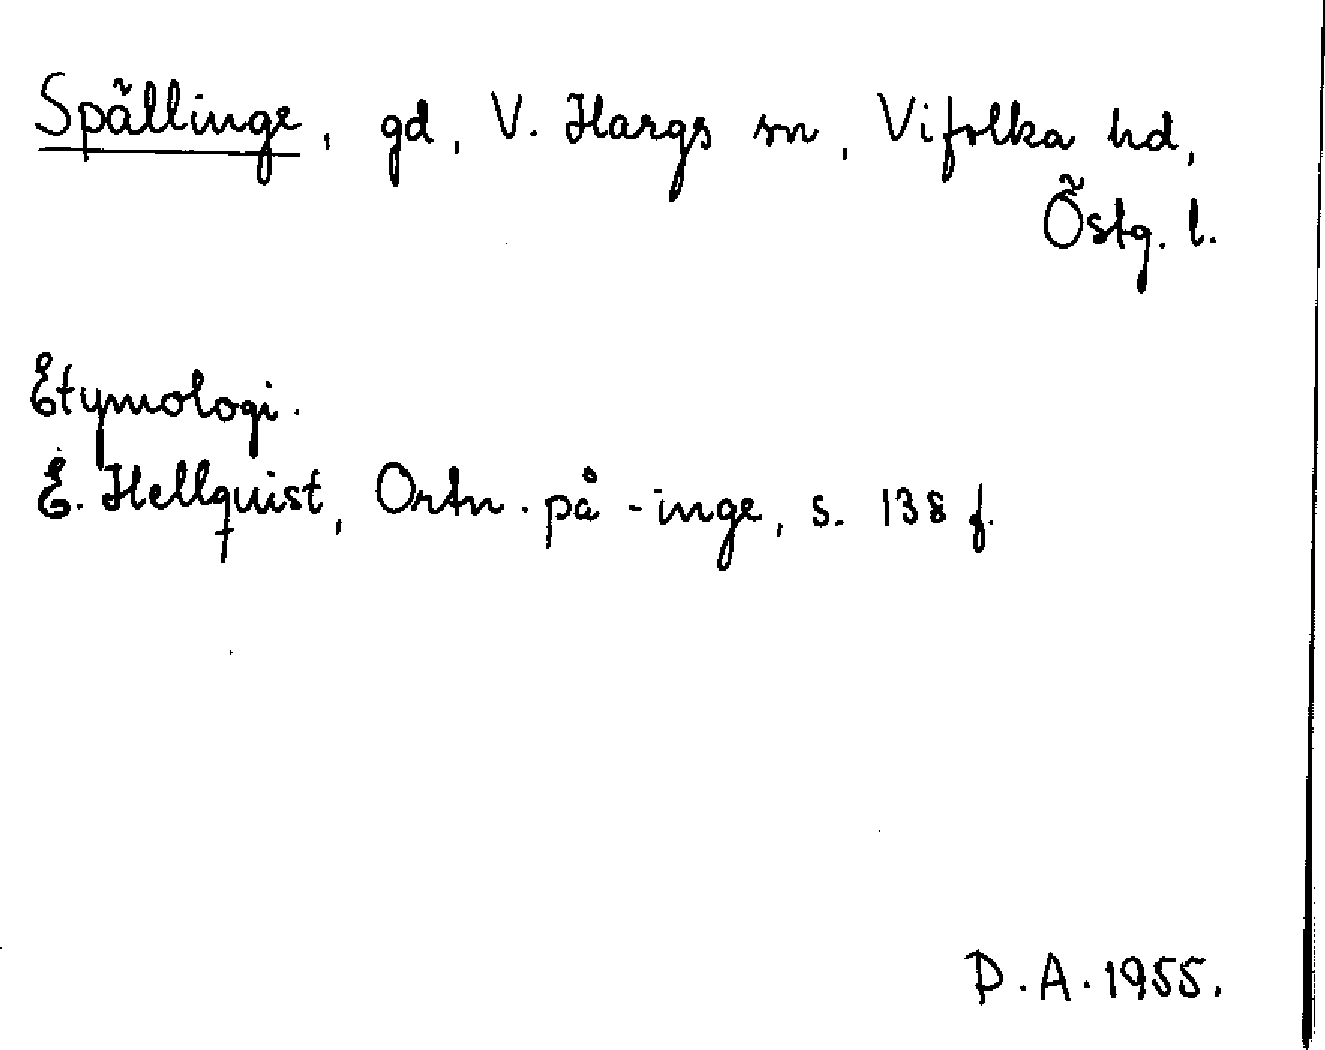 Spällinge, gd, V. Hargs sn, Vifolka hd,
Östg. l.
Etymologi.
E. Hellquist, Ortn. på -inge, s. 138 f.
D.A. 1955.